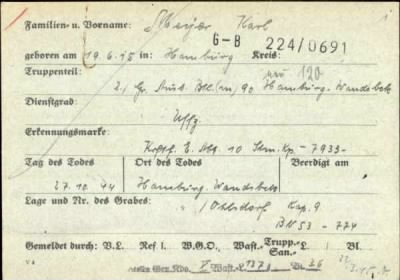 Familien- u. Vorname: Meyer Karl
G-B 224/0691
geboren am 19.6.15 in: Hamburg Kreis:
Truppenteil:
120
2./ Gr. Ausb. Btl. (m) 90 Hamburg-Wandsbek
Dienstgrad:
Uffz
Erkennungsmarke:
E. Abt. 10 Stm. Kp - 7933 -
Tag des Todes Ort des Todes Beerdigt am
27.10.44 Hamburg-Wandsbek
Lage und Nr. des Grabes: Ohlsdorf Kap. 9
BN 53 - 774
Gemeldet durch: V.L. Ref I. W.G.O. Wast.-Trupp.-San.- L. Bl.
V 1373 Bl. 36